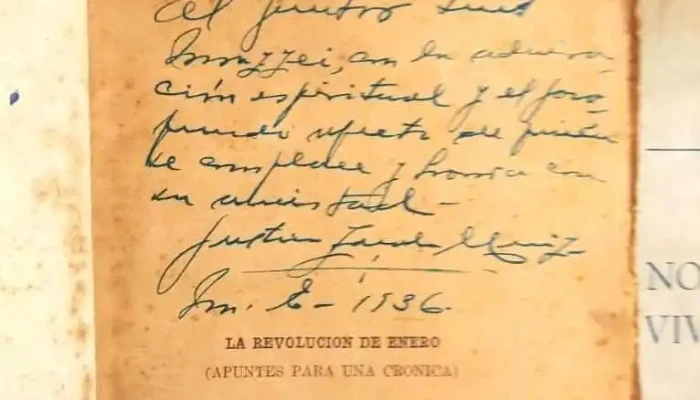 Al pintor Luis
Mazzei, con la admira-
ción espiritual y el pro-
fundo afecto de quien
se complace y honra con
su amistad -
M. E - 1936.
LA REVOLUCION DE ENERO
(APUNTES PARA UNA CRONICA)
NO
VIV